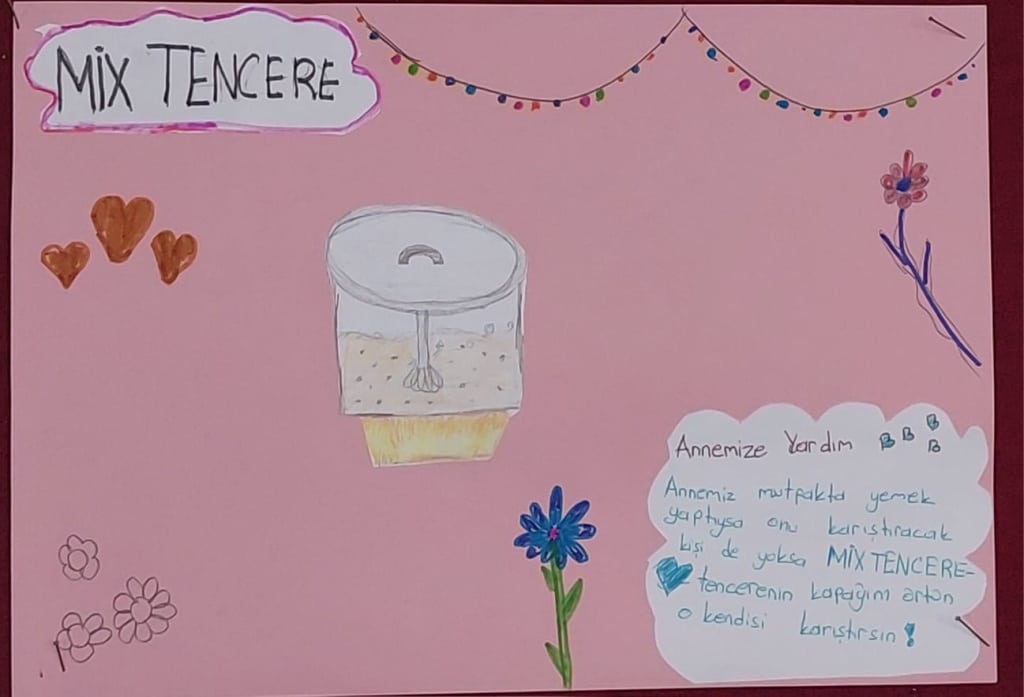 MİX TENCERE
Annemize Yardım
Annemiz mutpakta yemek
yaptıysa onu karıştıracak
kişi de yoksa MİX TENCERE-
tencerenin kapağım örtün
o kendisi karıştırsın!